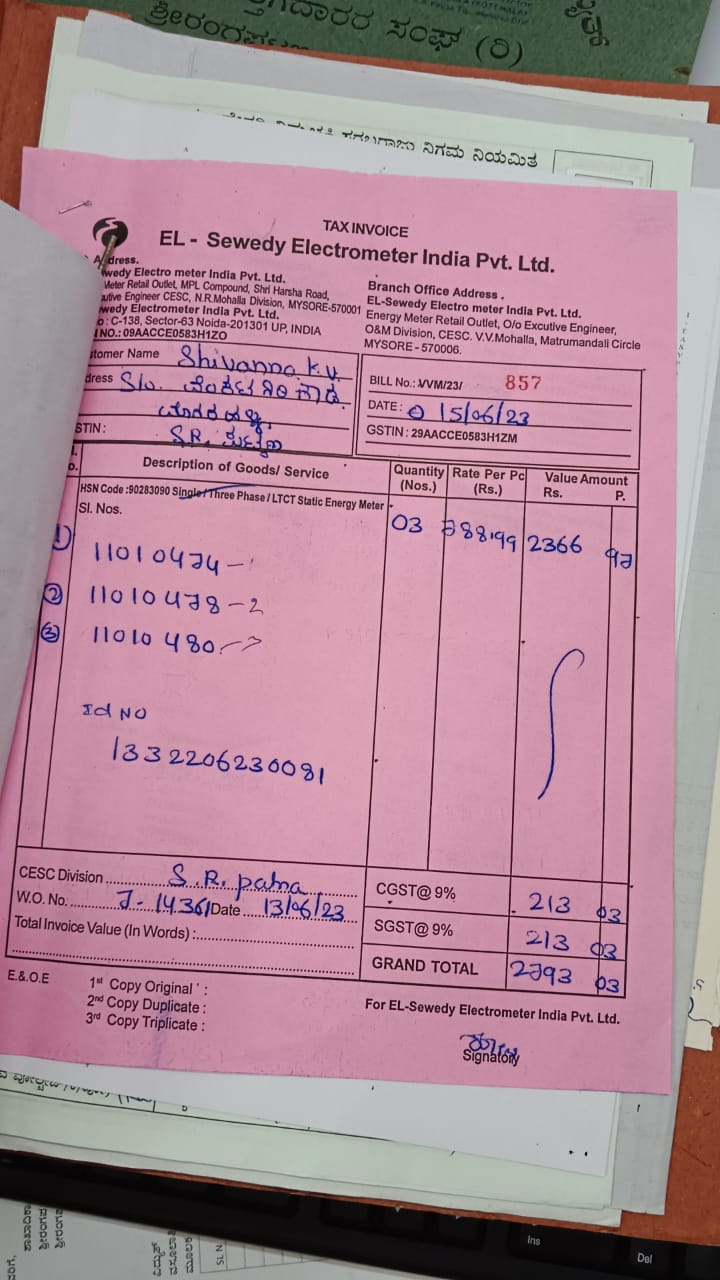 ಶ್ರೀರಂಗಪ ದಾರರ ಸಂಘ (ರಿ)
ನಿಗಮ ನಿಯಮಿತ
TAX INVOICE
EL - Sewedy Electrometer India Pvt. Ltd.
dress.
wedy Electro meter India Pvt. Ltd.
Meter Retail Outlet, MPL Compound, Shri Harsha Road,
utive Engineer CESC, N.R.Mohalla Division, MYSORE-570001
wedy Electrometer India Pvt. Ltd.
: C-138, Sector-63 Noida-201301 UP, INDIA
NO.: 09AACCE0583H1ZO
Branch Office Address .
EL-Sewedy Electro meter India Pvt. Ltd.
Energy Meter Retail Outlet, O/o Excutive Engineer,
O&M Division, CESC. V.V.Mohalla, Matrumandali Circle
MYSORE - 570006.
tomer Name Shivanna K.V.
dress S/o.
STIN : S.R.
BILL No.: VVM/23/ 857
DATE : 15/06/23
GSTIN : 29AACCE0583H1ZM
Description of Goods/ Service
Quantity (Nos.)
Rate Per Pc (Rs.)
Value Amount Rs. P.
HSN Code :90283090 Single / Three Phase / LTCT Static Energy Meter
Sl. Nos.
03 788.99 2366 97
1) 11010474 - 1
2) 11010478 - 2
3) 11010480 - 3
Id NO
1332206230081
CESC Division S.R. patna
W.O. No. J-14361 Date 13/06/23
Total Invoice Value (In Words) :
CGST@ 9% 213 03
SGST@ 9% 213 03
GRAND TOTAL 2793 03
E.&.O.E
1st Copy Original :
2nd Copy Duplicate :
3rd Copy Triplicate :
For EL-Sewedy Electrometer India Pvt. Ltd.
Signatory
Ins
Del
SL N